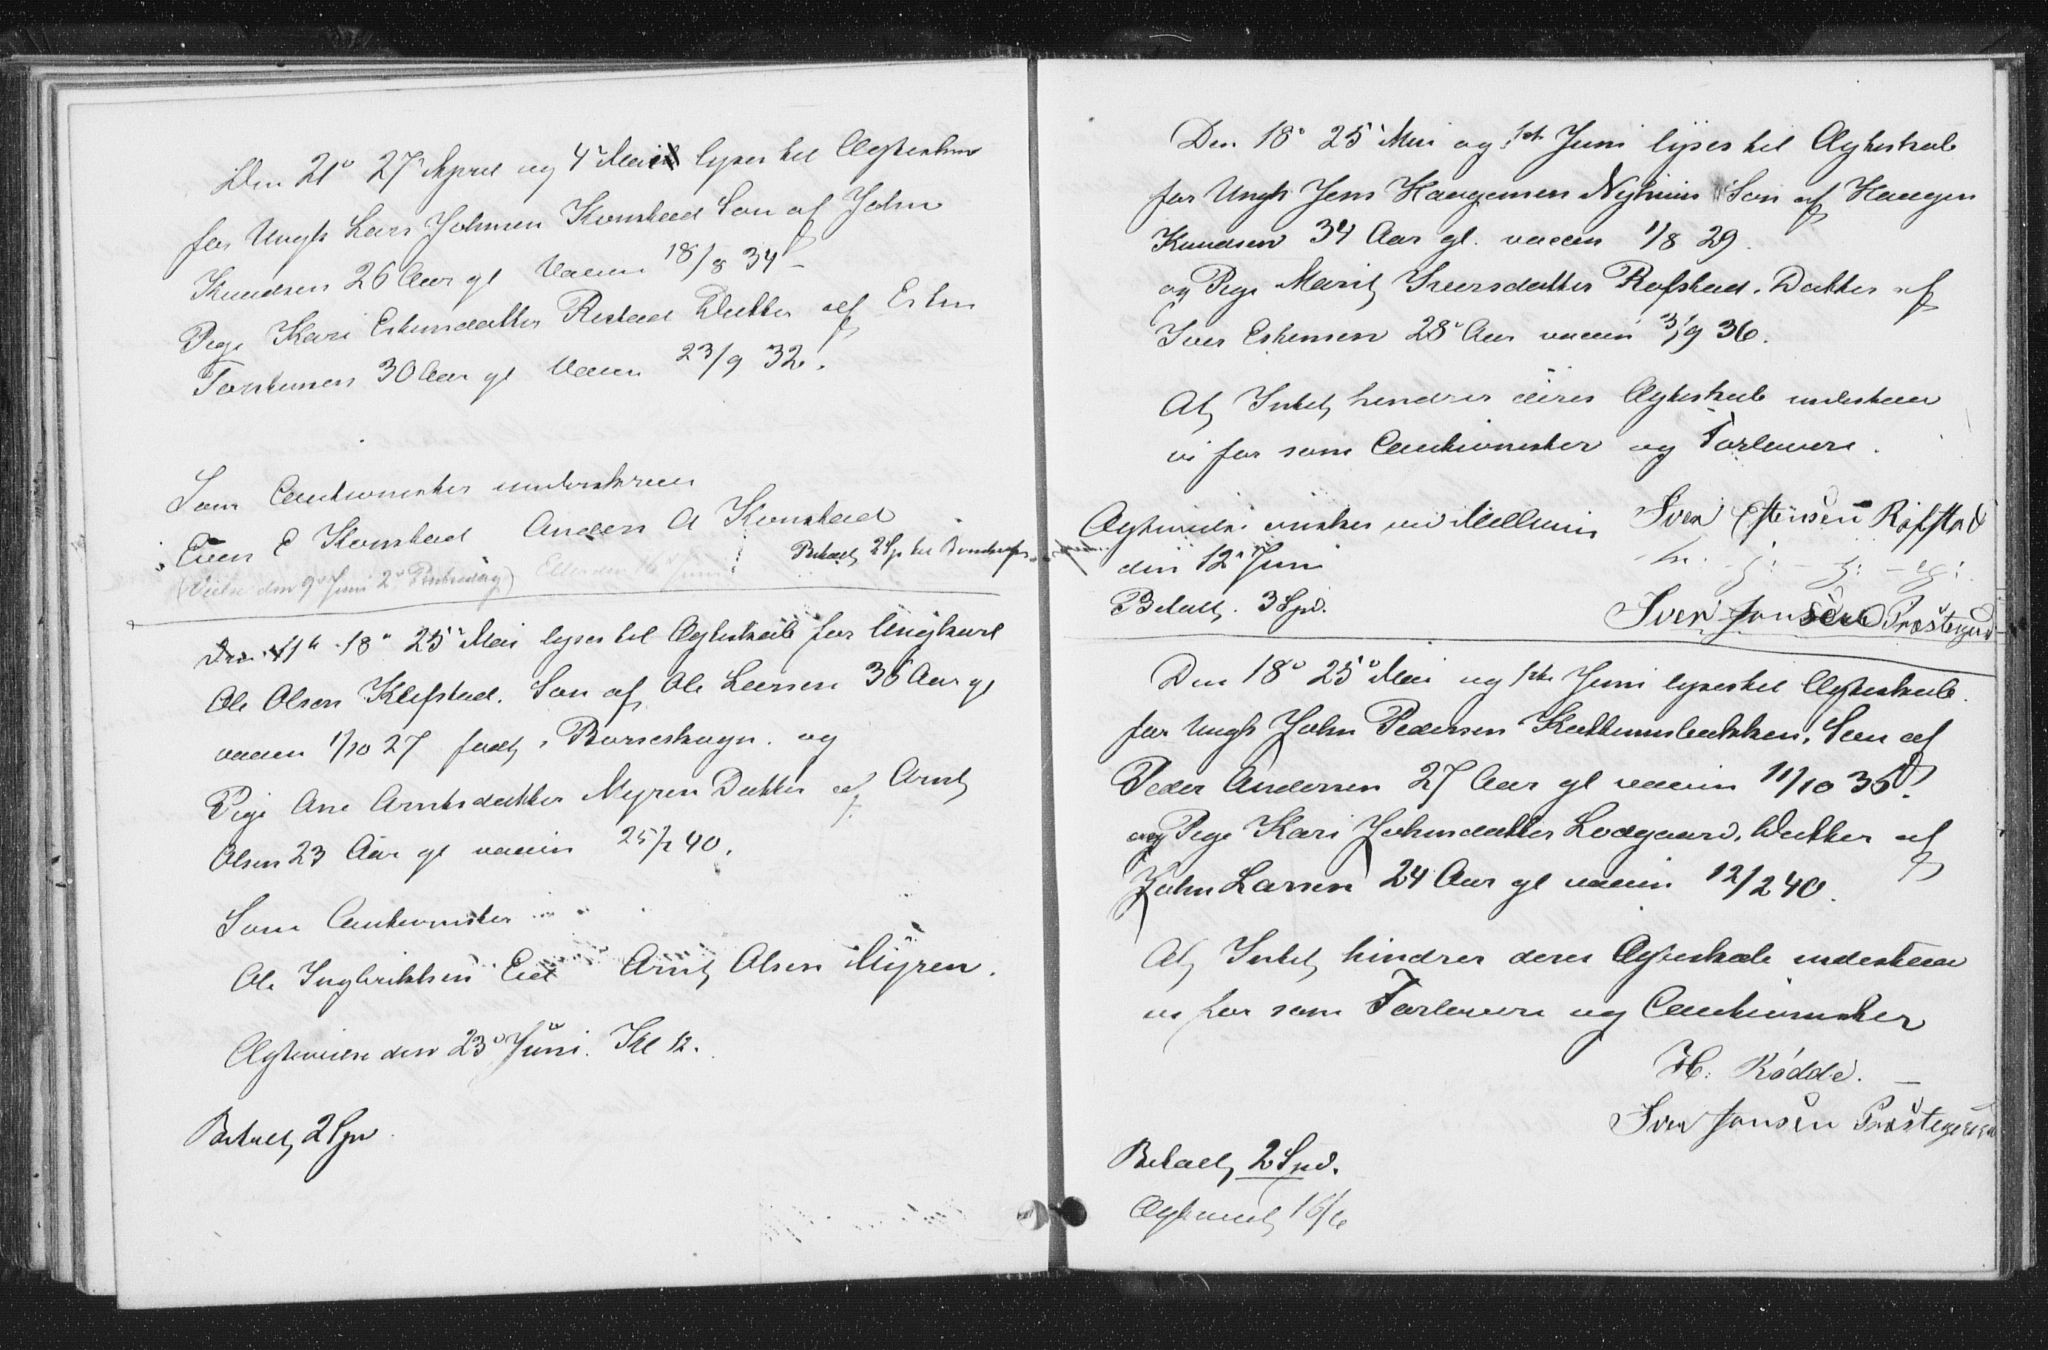 Den 21de 27de April og 4de Mai lyses til Ægteskab
for Ungk Lars Johnsen Komstad Søn af John
Knudsen 26 Aar gl Vaccin 18/8 34
Pige Kari Estensdatter Ristad Datter af Esten
Torstensen 30 Aar gl Vaccin 23/9 32.
Som Cautionister underskrives
Even E Komstad Anders A Komstad
Betalt 2 Sp til
(Vielse den 9de Juni 2den Pintsedag) Eller den 16de Juni
Den 11te 18de 25de Mai lyses til Ægteskab for Ungkarl
Ole Olsen Klefstad. Søn af Ole Larsen 36 Aar gl
vaccin 1/10 27 født i Børseskogn. og
Pige Ane Arntsdatter Myren Datter af Arnt
Olsen 23 Aar gl vaccin 25/2 40.
Som Cautionister
Ole Ingbrikktsen Eid Arnt Olsen Myren.
Ægtevies den 23de Juni. Kl 12.
Betalt 2 Spd
Den 18de 25de Mai og 1ste Juni lyses til Ægteskab
for Ungk Jens Haagensen Nyhuus Søn af Haagen
Knudsen 34 Aar gl. vaccin 1/8 29.
og Pige Marit Iversdatter Rofstad. Datter af
Iver Estensen 28 Aar vaccin 3/9 36.
At Intet hindrer deres Ægteskab indestaae
vi for som Cautionister og Forlovere.
Ægtevielse ønskes ved Melhuus Iver Estensen Røfstad
den 12te Juni
Betalt. 3 Spd. Iver Jonsen Præstegaard
Den 18de 25de Mai og 1ste Juni lyses til Ægteskab.
for Ungk John Pedersen Kattumsbakken, Søn af
Peder Andersen 27 Aar gl vaccin 11/10 36.
og Pige Kari Johnsdatter Lodgaard, Datter af
John Larsen 24 Aar gl vaccin 12/2 40.
At Intet hindrer deres Ægteskab indestaae
vi for som Forlovere og Cautionister
H. Rødde.
Iver Jonsen Præstegaard
Betalt 2 Spd.
Ægteviet 16/6